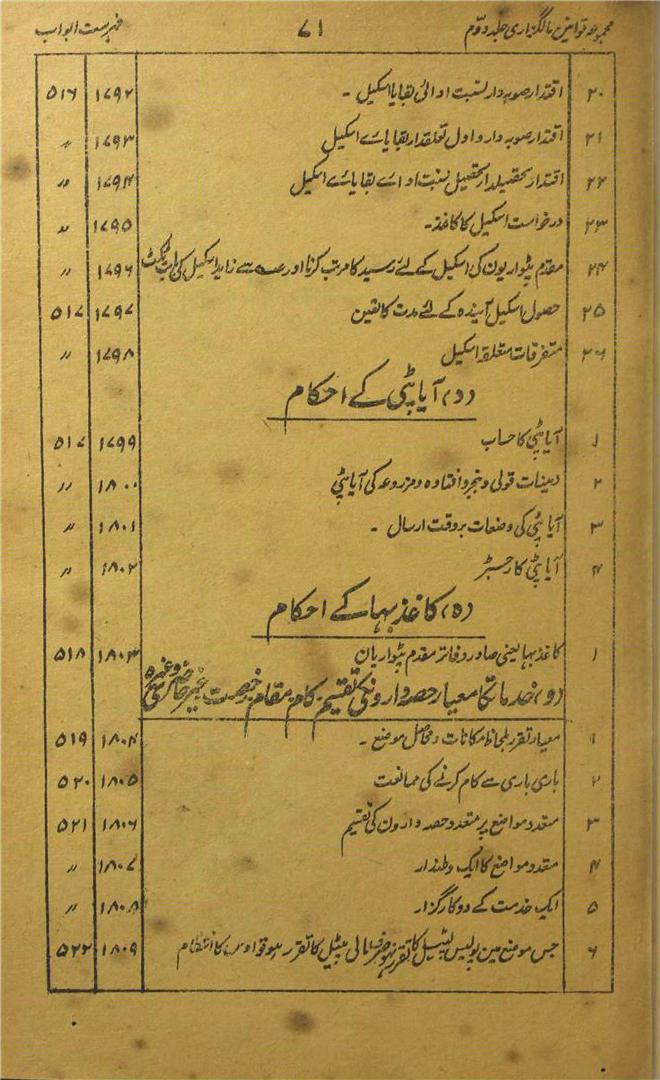 مجموعہ قوانین مالگزاری جلد دوّم ۷۱ فہرست ابواب
۲۰ اقتدار صوبہ دار نسبت ادائی بقایا اسکیل ۔ ۱۷۹۲ ۵۱۶
۲۱ اقتدار صوبہ دار و اول تعلقدار بقایائے اسکیل ۱۷۹۳ 〃
۲۲ اقتدار تحصیلدار تحصیل نسبت اداے بقایائے اسکیل ۱۷۹۴ 〃
۲۳ درخواست اسکیل کا کاغذ۔ ۱۷۹۵ 〃
۲۴ مقدم پٹواریون کی اسکیل کے لئے رسید کا مرتب کرنا اور سے زاید اسکیل کی ٹکٹ ۱۷۹۶ 〃
۲۵ حصول اسکیل آیندہ کے لئے مدت کا تعین ۱۷۹۷ ۵۱۷
۲۶ متفرقات متعلقہ اسکیل ۱۷۹۸ 〃
(د) آیا پٹی کے احکام
۱ آیا پٹی کا حساب ۱۷۹۹ ۵۱۷
۲ دیہات قولی و بنجر و افتادہ و مزروعہ کی آیا پٹی ۱۸۰۰ 〃
۳ آیا پٹی کی وضعات بر وقت ارسال ۔ ۱۸۰۱ 〃
۴ آیا پٹی کا رجسٹر ۱۸۰۲ 〃
(ہ) کاغذ بہا کے احکام
۱ کاغذ بہا یعنی صادر دفاتر مقدم پٹواریان ۱۸۰۳ ۵۱۸
(و) خدمات کا معیار حصہ دارونکی تقسیم کام مقام رخصت غیر حاضری وغیرہ
۱ معیار تقرر بلحاظ مکانات و محاصل موضع ۔ ۱۸۰۴ ۵۱۹
۲ باری باری سے کام کرنے کی ممانعت ۱۸۰۵ ۵۲۰
۳ متعدد مواضع پر متعدد حصہ دارون کی تقسیم ۱۸۰۶ ۵۲۱
۴ متعدد مواضع کا ایک وطندار ۱۸۰۷ 〃
۵ ایک خدمت کے دو کارگزار ۱۸۰۸ 〃
۶ جس موضع مین پولیس پٹیل کا تقرر نہو صرف مالی پٹیل کا تقرر ہو تو اوس کا انتظام ۱۸۰۹ ۵۲۲